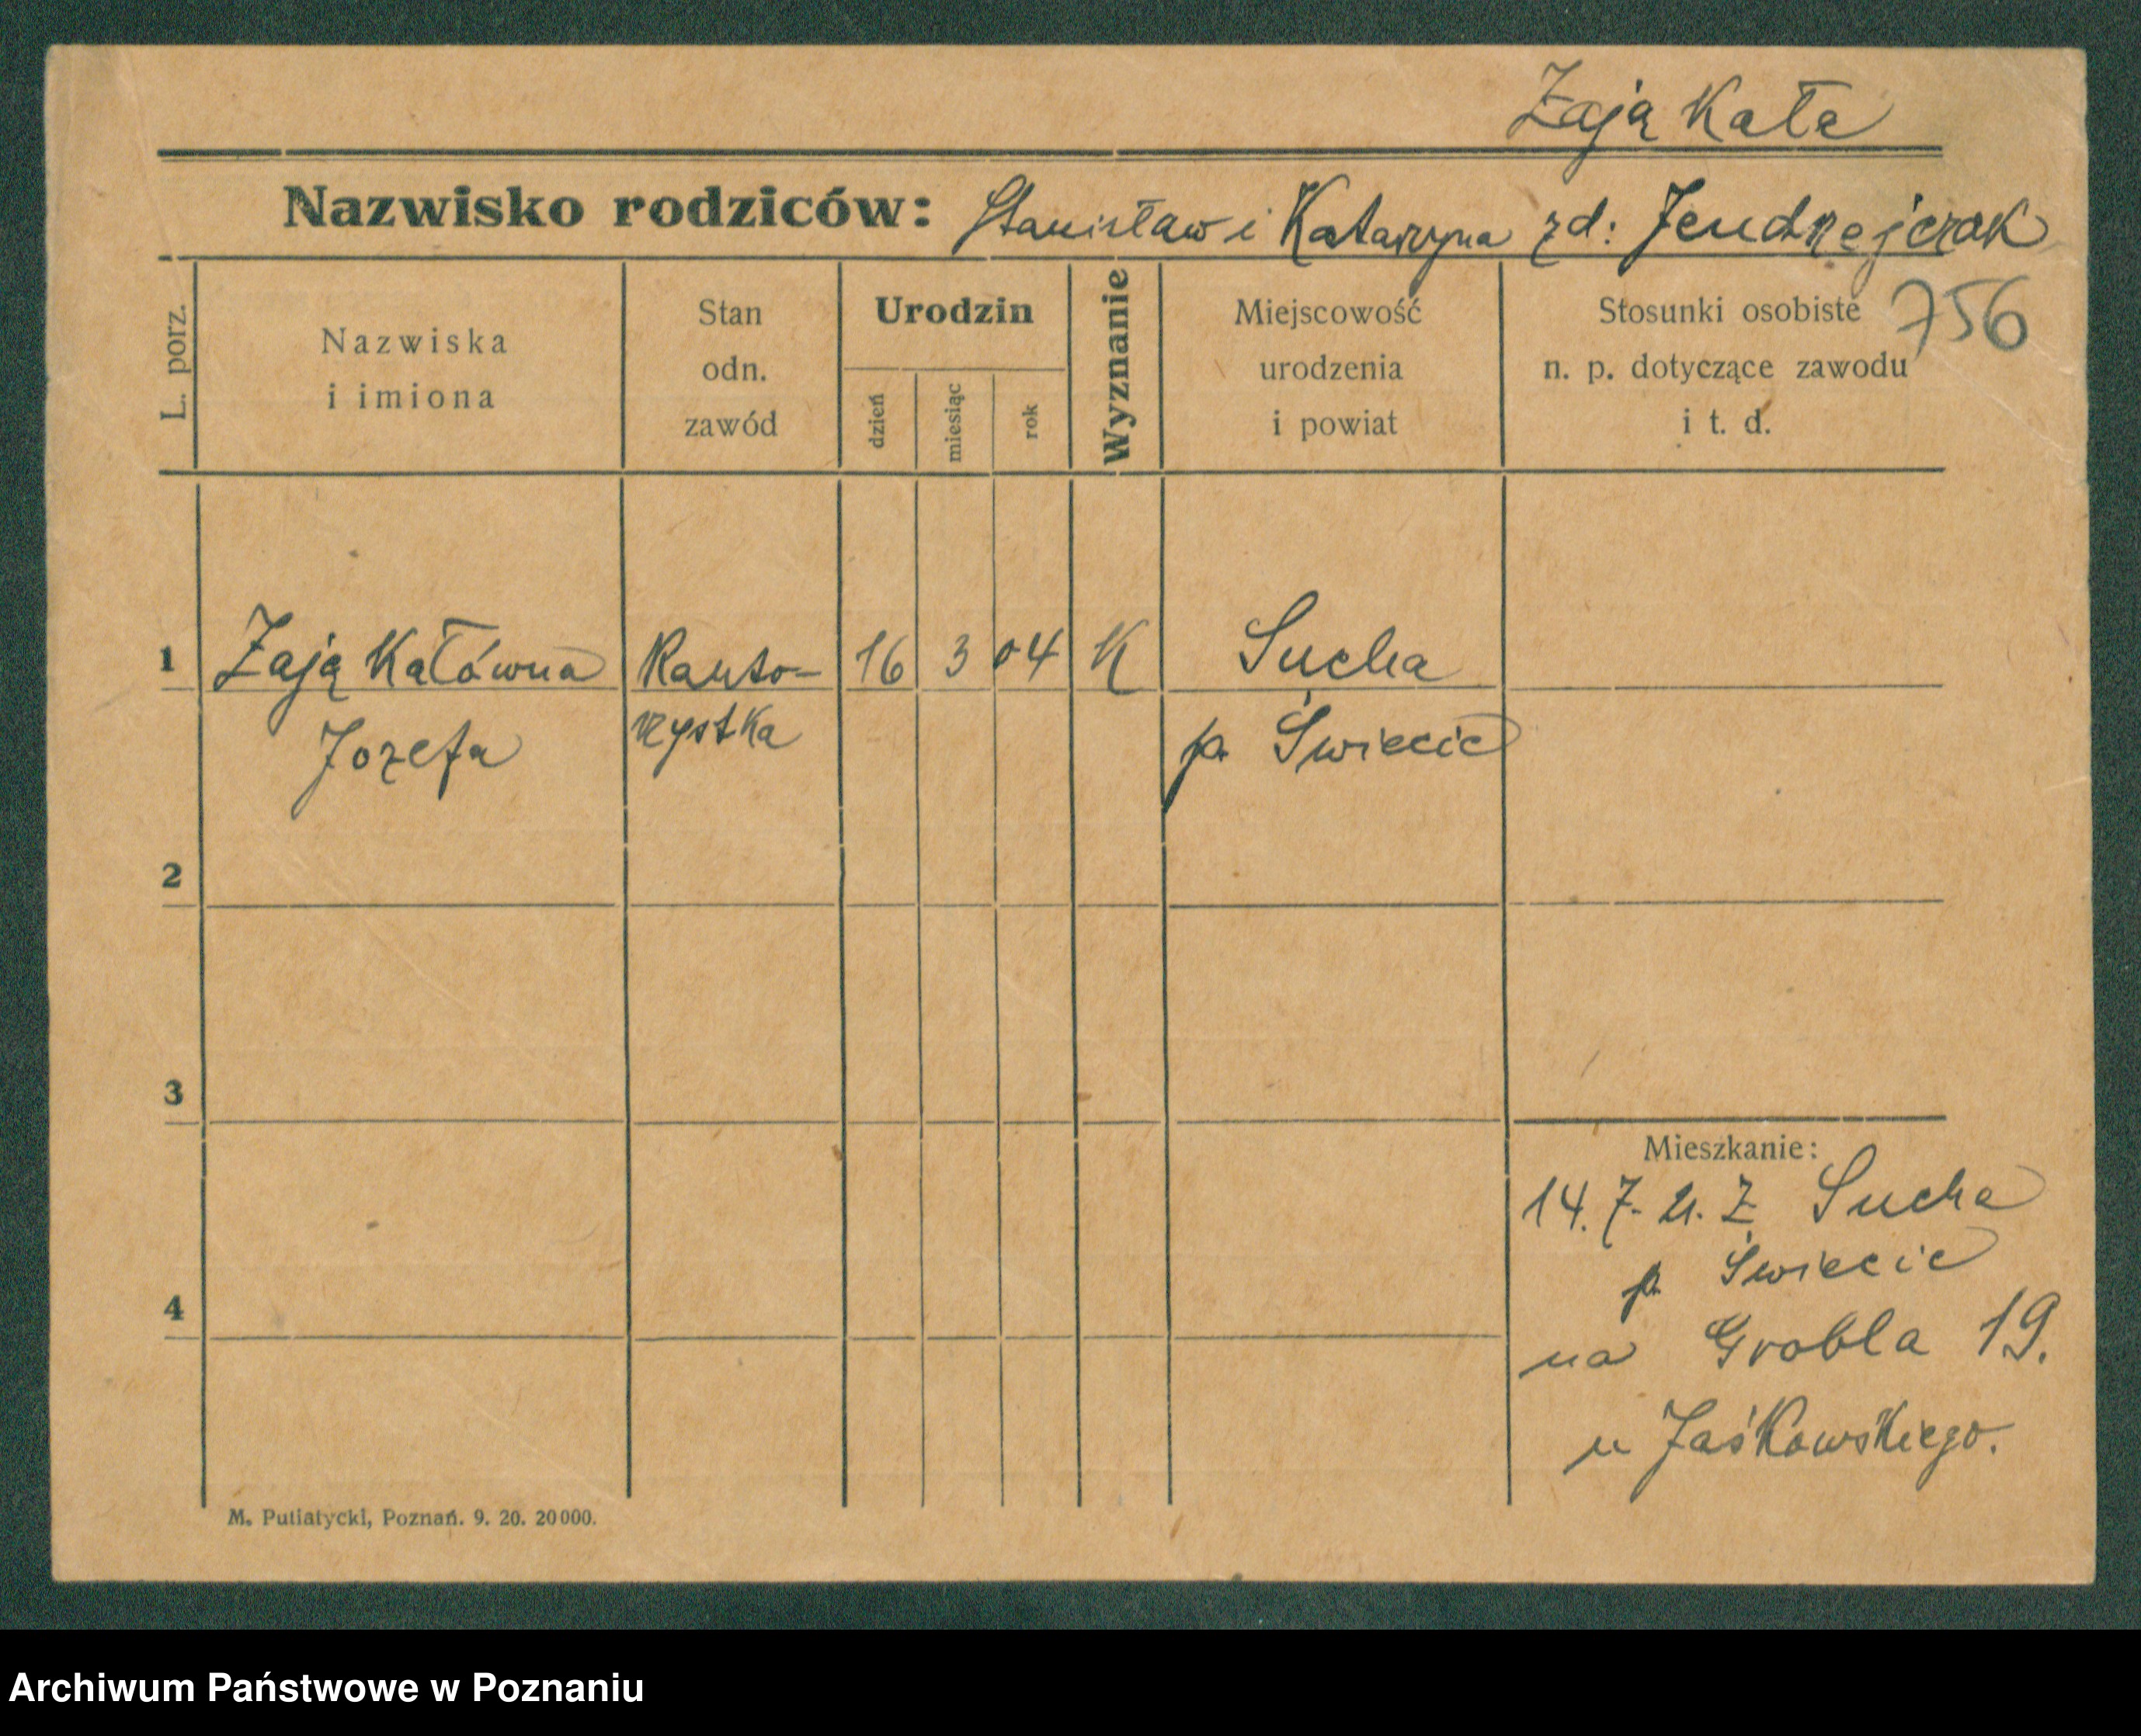 Zają Kała
Nazwisko rodziców: Stanisław i Katarzyna zd: Jendrzejczak
756
L. porz.
Nazwiska
i imiona
Stan
odn.
zawód
Urodzin
dzień
miesiąc
rok
Wyznanie
Miejscowość
urodzenia
i powiat
Stosunki osobiste
n. p. dotyczące zawodu
i t. d.
1 Zają Kałówna Kanto- 16 3 04 K Sucha
Jozefa rzystka p. Świecie
2
3
4
Mieszkanie:
14. 7. 21. Z Sucha
p. Świecie
na Grobla 19.
u Jaśkowskiego.
M. Putiatycki, Poznań. 9. 20. 20000.
Archiwum Państwowe w Poznaniu